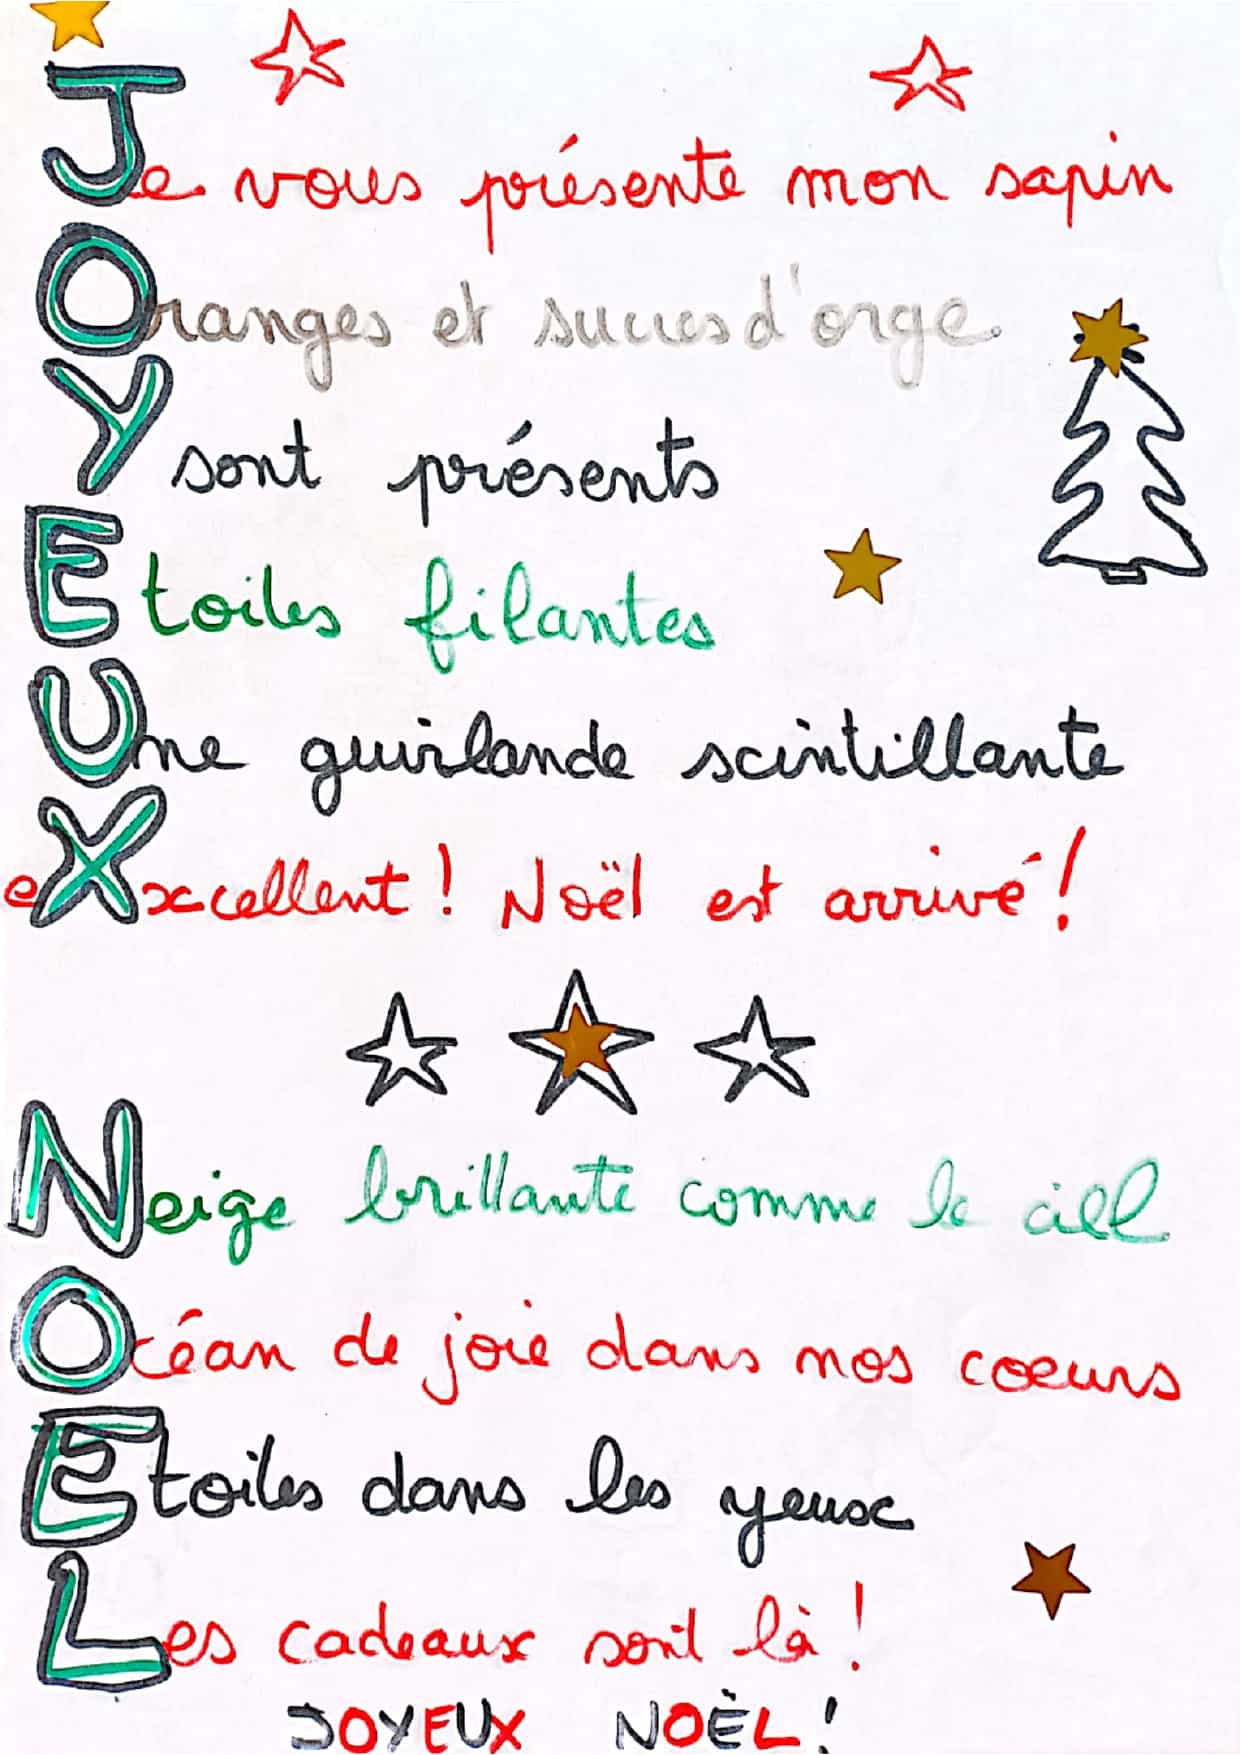 Je vous présente mon sapin
Oranges et sucres d'orge
Y sont présents
Etoiles filantes
Une guirlande scintillante
eXxcellent ! Noël est arrivé !
Neige brillante comme le ciel
Océan de joie dans nos coeurs
Etoiles dans les yeux
Les cadeaux sont là !
JOYEUX NOËL !